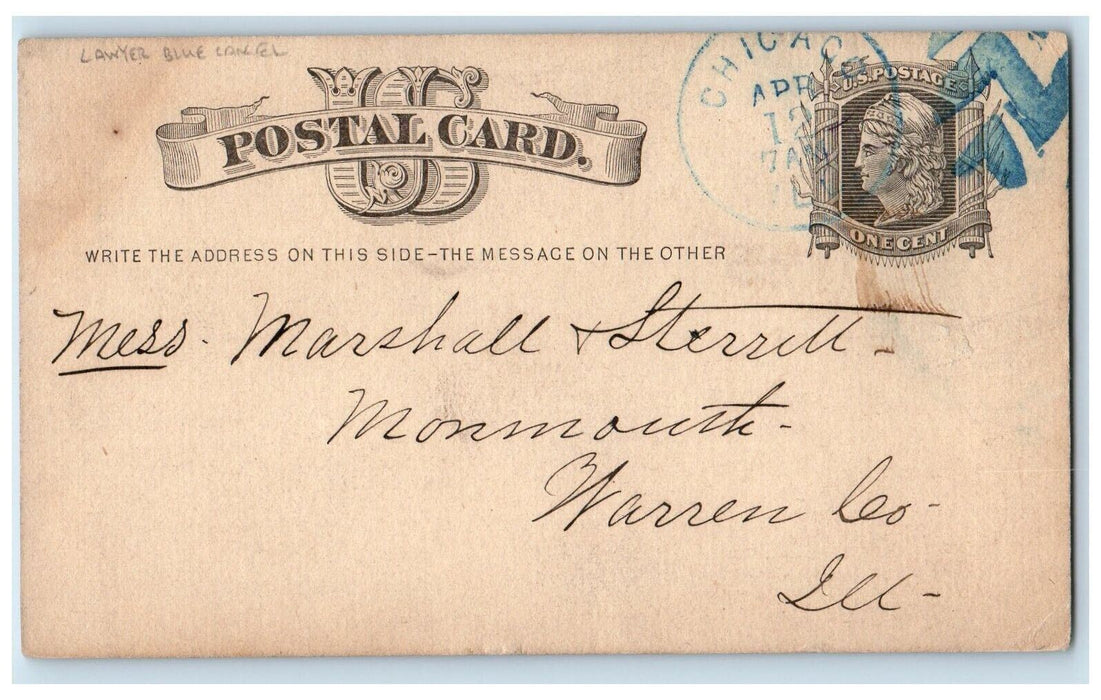 LAWYER BLUE CANCEL
US
POSTAL CARD.
CHICAGO
APR
12
7AM
ILL
U.S. POSTAGE
ONE CENT
WRITE THE ADDRESS ON THIS SIDE–THE MESSAGE ON THE OTHER
Mess. Marshall & Sterrett -
Monmouth -
Warren Co -
Ill -